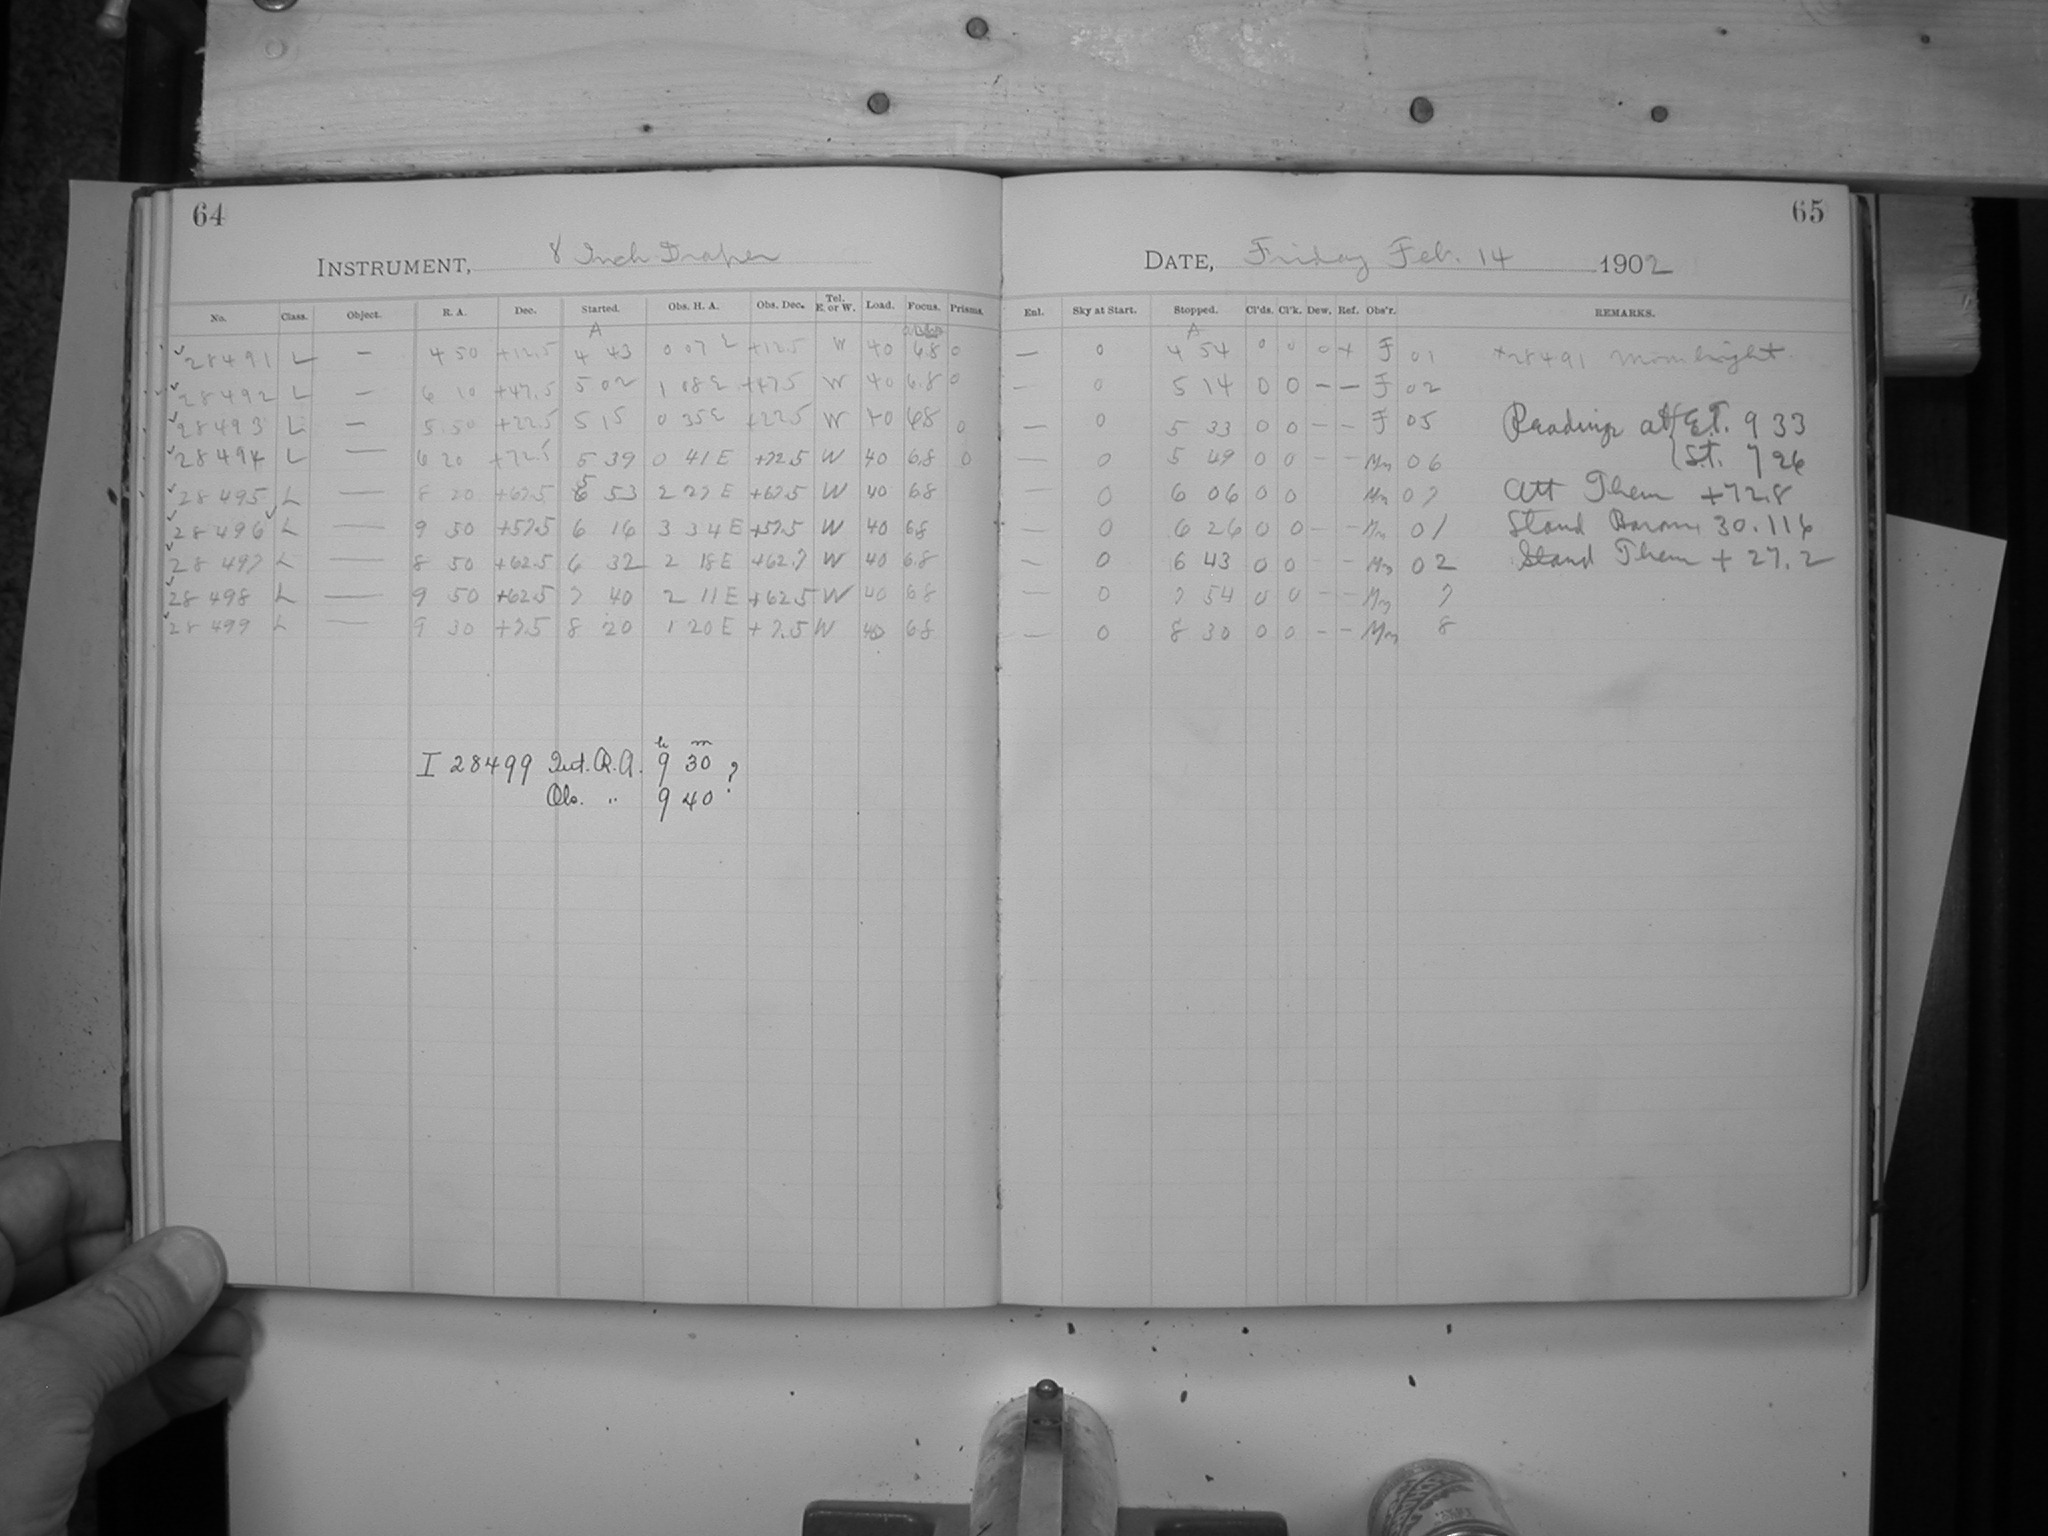 64
INSTRUMENT, 8 Inch Draper
No. Class. Object. R. A. Dec. Started. Obs. H. A. Obs. Dec. Tel. E. or W. Load. Focus. Prisms.
A
28491 L — 4 50 +12.5 4 43 0 07 E +12.5 W 40 6.8 0
28492 L — 6 10 +47.5 5 02 1 08 E +47.5 W 40 6.8 0
28493 L — 5 50 +22.5 5 15 0 35 E +22.5 W 40 68 0
28494 L — 6 20 +72.5 5 39 0 41 E +72.5 W 40 68 0
28495 L — 8 20 +67.5 5 53 2 27 E +67.5 W 40 68
28496 L — 9 50 +57.5 6 16 3 34 E +57.5 W 40 68
28497 L — 8 50 +62.5 6 32 2 18 E +62.7 W 40 6.8
28498 L — 9 50 +62.5 7 40 2 11 E +62.5 W 40 68
28499 L — 9 30 +7.5 8 20 1 20 E +7.5 W 40 68
h m
I 28499 Int. R.A. 9 30 ?
Obs. " 9 40
65
DATE, Friday Feb. 14 1902
Enl. Sky at Start. Stopped. Cl'ds. Cl'k. Dew. Ref. Obs'r. REMARKS.
A
— 0 4 54 0 0 0 + F 01 +28491 Moon bright.
— 0 5 14 0 0 — — F 02
— 0 5 33 0 0 — — F 05 Reading at { E.T. 9 33
— 0 5 49 0 0 — — Mn 06 S.T. 7 26
— 0 6 06 0 0 Mn 07 Att Them +72.8
— 0 6 26 0 0 — — Mn 01 Stand Barom 30.116
— 0 6 43 0 0 — — Mn 02 Stand Them + 27.2
— 0 7 54 0 0 — — Mn 7
— 0 8 30 0 0 — — Mn 8